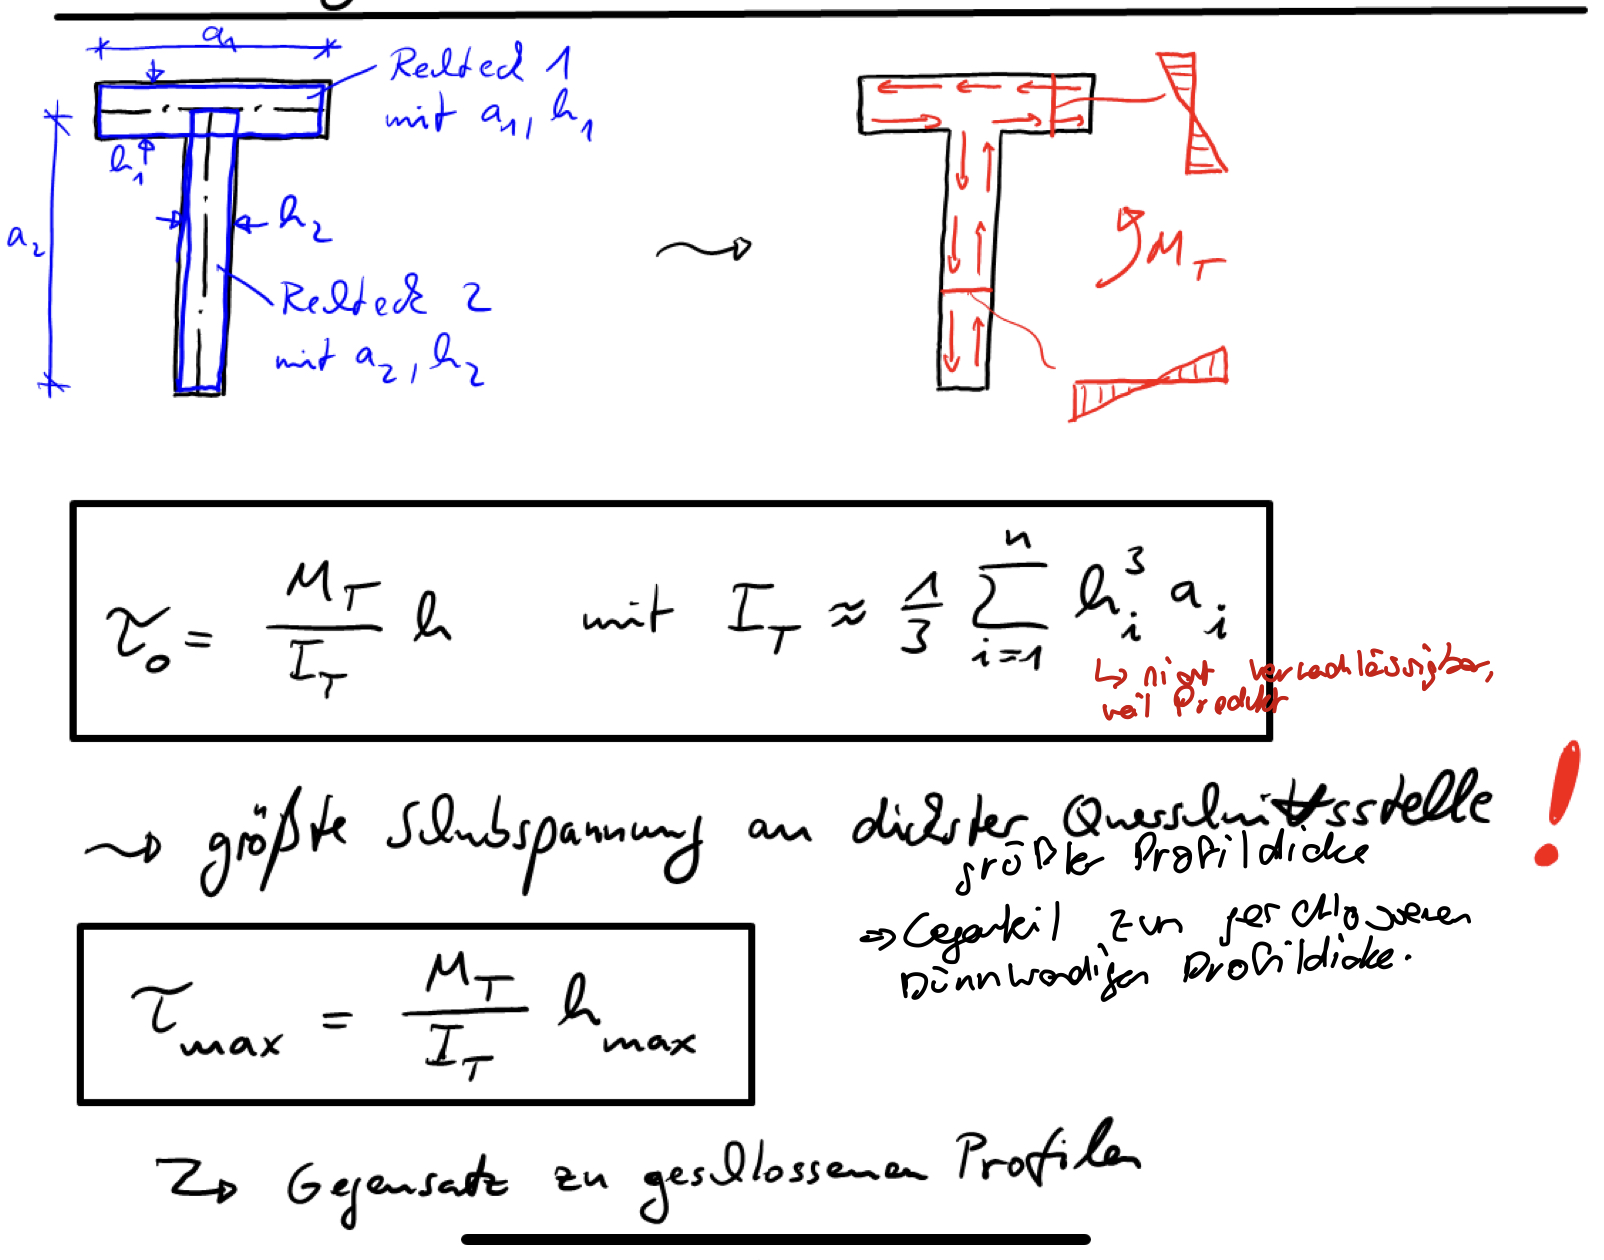 a₁
Rechteck 1
mit a₁, h₁
h₁
a₂
h₂
Rechteck 2
mit a₂, h₂
M_T
τ₀ = M_T / I_T h mit I_T ≈ 1/3 ∑_{i=1}^{n} h_i³ a_i
↳ nicht vernachlässigbar,
weil Produkt
⇝ größte Schubspannung an dickster Querschnittsstelle !
größter Profildicke
⇒ Gegenteil zum geschlossenen
Dünnwandigen Profildicke.
τ_max = M_T / I_T h_max
↳ Gegensatz zu geschlossenen Profilen